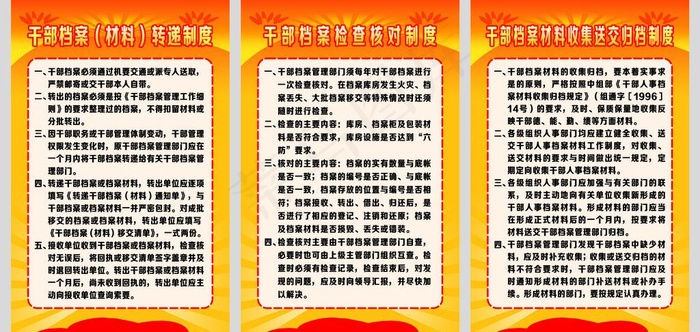 干部档案（材料）转递制度
一、干部档案必须通过机要交通或派专人送取，
严禁邮寄或交干部本人自带。
二、转出的档案必须是按《干部档案管理工作细
则》的要求整理过的档案，不得扣留材料或
分批转出。
三、因干部职务或干部管理体制变动，干部管理
权限发生变化时，原干部档案管理部门应在
一个月内将干部档案转递给有关干部档案管
理部门。
四、转递干部档案或档案材料，转出单位应逐项
填写《转递干部档案（材料）通知单》，与
干部档案或档案材料一并严密包封。对成批
移交的档案或档案材料，转出单位应填写
《干部档案（材料）移交清单》，一式两份。
五、接收单位收到干部档案或档案材料，检查核
对无误后，将回执或移交清单签字盖章并及
时退回转出单位。转出干部档案或档案材料
一个月后，尚未收到回执的，转出单位应主
动向接收单位查询索要。
干部档案检查核对制度
一、干部档案管理部门须每年对干部档案进行
一次检查核对。在档案库房发生火灾、档
案丢失、大批档案移交等特殊情况时还须
随时进行检查。
二、检查的主要内容：库房、档案柜及包装材
料是否符合要求，库房设施是否达到“六
防”要求。
三、核对的主要内容：档案的实有数量与底帐
是否一致；档案的编号是否正确、与底帐
是否一致，档案存放的位置与编号是否相
符；档案接收、转出、借出、归还后，是
否进行了相应的登记、注销和还原；档案
及档案材料是否损毁、丢失或错装。
四、检查核对主要由干部档案管理部门自查，
必要时也可由上级主管部门组织互查。检
查时必须有检查记录，检查结束后，对发
现的问题，应及时向领导汇报，并尽快加
以解决。
干部档案材料收集送交归档制度
一、干部档案材料的收集归档，要本着实事求
是的原则，严格按照中组部《干部人事档
案材料收集归档规定》（组通字［1996］
14号）的要求，及时、保质保量地收集反
映干部德、能、勤、绩等方面材料。
二、各级组织人事部门均应建立健全收集、送
交干部人事档案材料工作制度，对收集、
送交材料的要求与时间做出统一规定，定
期定向收集干部人事档案材料。
三、各级组织人事部门应加强与有关部门的联
系，及时主动地向有关单位收集新形成的
干部人事档案材料。形成材料的部门应当
在形成正式材料后的一个月内，按要求将
材料送交干部档案管理部门归档。
四、干部档案管理部门发现干部档案中缺少材
料，应及时补充收集；收集或送交归档的材
料不符合要求时，干部档案管理部门应及
时通知形成材料的部门补送材料或补办手
续。形成材料的部门，要按规定认真办理。